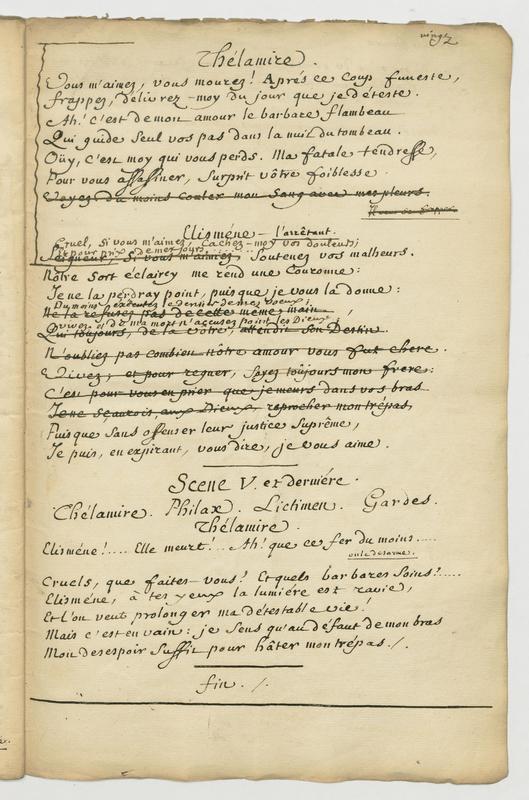 vingt
Thélamire.
Vous m'aimez, vous mourez! Aprés ce Coup funeste,
frappez, délivrez-moy du jour que je déteste.
Ah! c'est de mon amour le barbare flambeau
Qui guide Seul vos pas dans la nuit du tombeau.
Oüy, c'est moy qui vous perds. Ma fatale tendresse,
Pour vous assassiner, Surprit vôtre foiblesse.
Voyez du moins couler mon Sang avec mes pleurs.
Elisméne - l'arrêtant.
Cruel, Si vous m'aimez, Cachez-moy vos douleurs;
Seigneur, Si vous m'aimez, Soutenez vos malheurs.
Nôtre Sort éclairey me rend une Couronne:
Je ne la perdray point, puisque je vous la donne:
Du moins exaucez le dernier de mes voeux;
Ne la refusez pas de cette meme main
Vivez, et de ma mort n'accusez point les Dieux;
Qui toûjours, de la vôtre, attendit Son Destin.
N'oubliez pas Combien nôtre amour vous fut chere.
Vivez, et pour regner, Soyez toûjours mon frere:
C'est pour vous en prier que je meurs dans vos bras
Je ne sçaurois, aux Dieux, reprocher mon trépas,
Puisque Sans offenser leur justice Suprême,
Je puis, en expirant, vous dire, je vous aime.
Scene V. et derniére.
Thélamire. Philax. Lictimen. Gardes.
Thélamire.
Elisméne!.... Elle meurt!.. Ah! que ce fer du moins.....
on le desarme.
Cruels, que faites-vous? Et quels barbares Soins?.....
Elisméne, à tes yeux la lumiére est ravie,
Et l'on veut prolonger ma détestable vie!
Mais c'est en vain: je Sens qu'au défaut de mon bras
Mon desespoir Suffit pour hâter mon trépas./.
fin./.